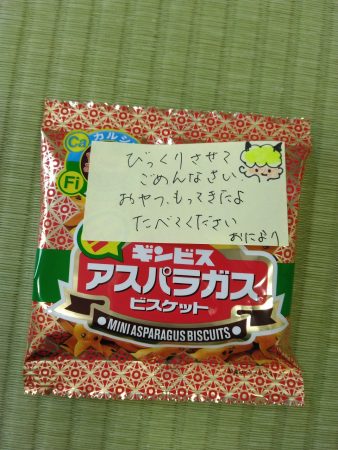 カルシ
Ca
Fi
びっくりさせて
ごめんなさい
おやつ、もってきたよ
たべてください
おにより
ギンビス
アスパラガス
ビスケット
MINI ASPARAGUS BISCUITS